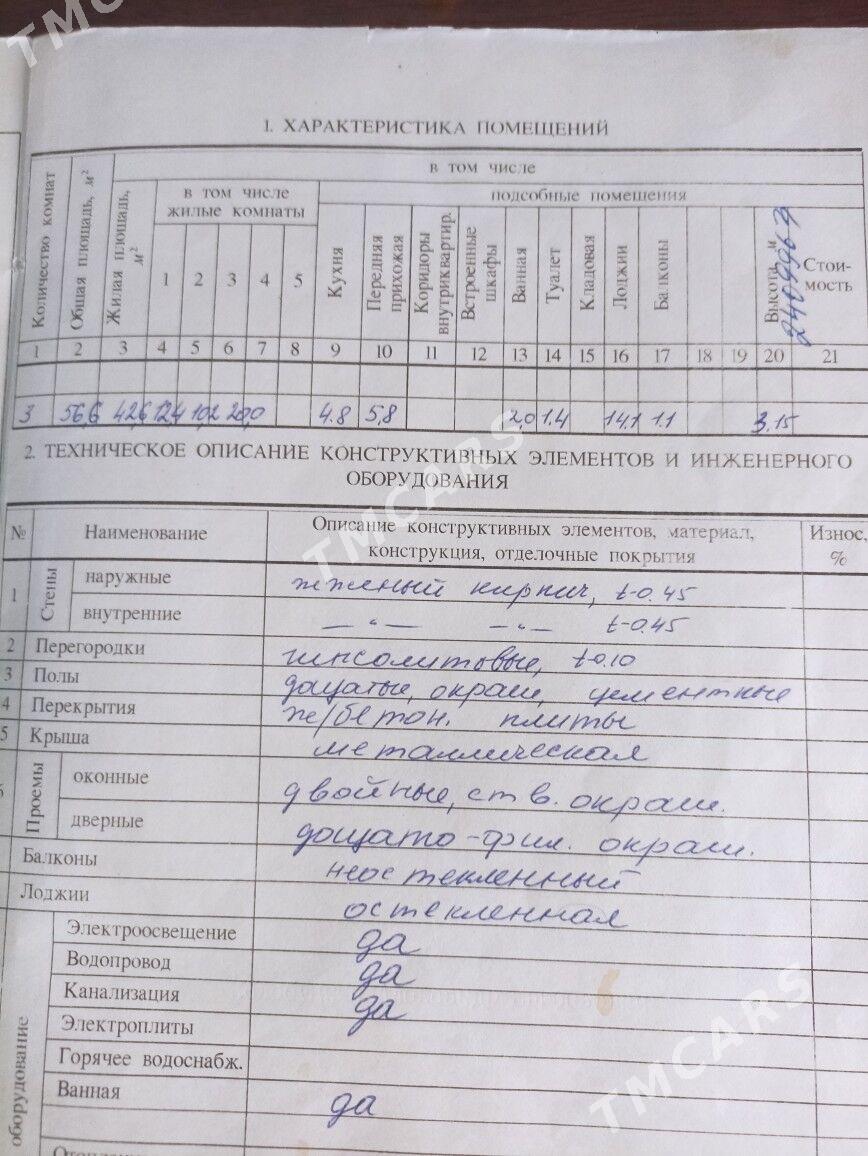 TMCARS
1. ХАРАКТЕРИСТИКА ПОМЕЩЕНИЙ
Количество комнат
Общая площадь, м²
Жилая площадь, м²
в том числе
в том числе жилые комнаты
подсобные помещения
1 2 3 4 5
Кухня
Передняя прихожая
Коридоры внутриквартир.
Встроенные шкафы
Ванная
Туалет
Кладовая
Лоджии
Балконы
Высота, м
Стои-
мость
1 2 3 4 5 6 7 8 9 10 11 12 13 14 15 16 17 18 19 20 21
3 56,6 42,6 12,4 10,2 20,0 4.8 5,8 2,0 1.4 14,1 1.1 3.15
2. ТЕХНИЧЕСКОЕ ОПИСАНИЕ КОНСТРУКТИВНЫХ ЭЛЕМЕНТОВ И ИНЖЕНЕРНОГО
ОБОРУДОВАНИЯ
TMCARS
№ Наименование Описание конструктивных элементов, материал, Износ,
конструкция, отделочные покрытия %
1 Стены наружные жженый кирпич, t-0.45
внутренние — " — — " — t-0.45
2 Перегородки гипсолитовые, t-0.10
3 Полы дощатые, окраш, цементные
4 Перекрытия ж/бетон. плиты
5 Крыша металлическая
Проемы оконные двойные, ств. окраш.
дверные дощато-фил. окраш.
Балконы неостекленный
Лоджии остекленная
оборудование
Электроосвещение да
Водопровод да
Канализация да
Электроплиты
Горячее водоснабж.
Ванная да
TMCARS